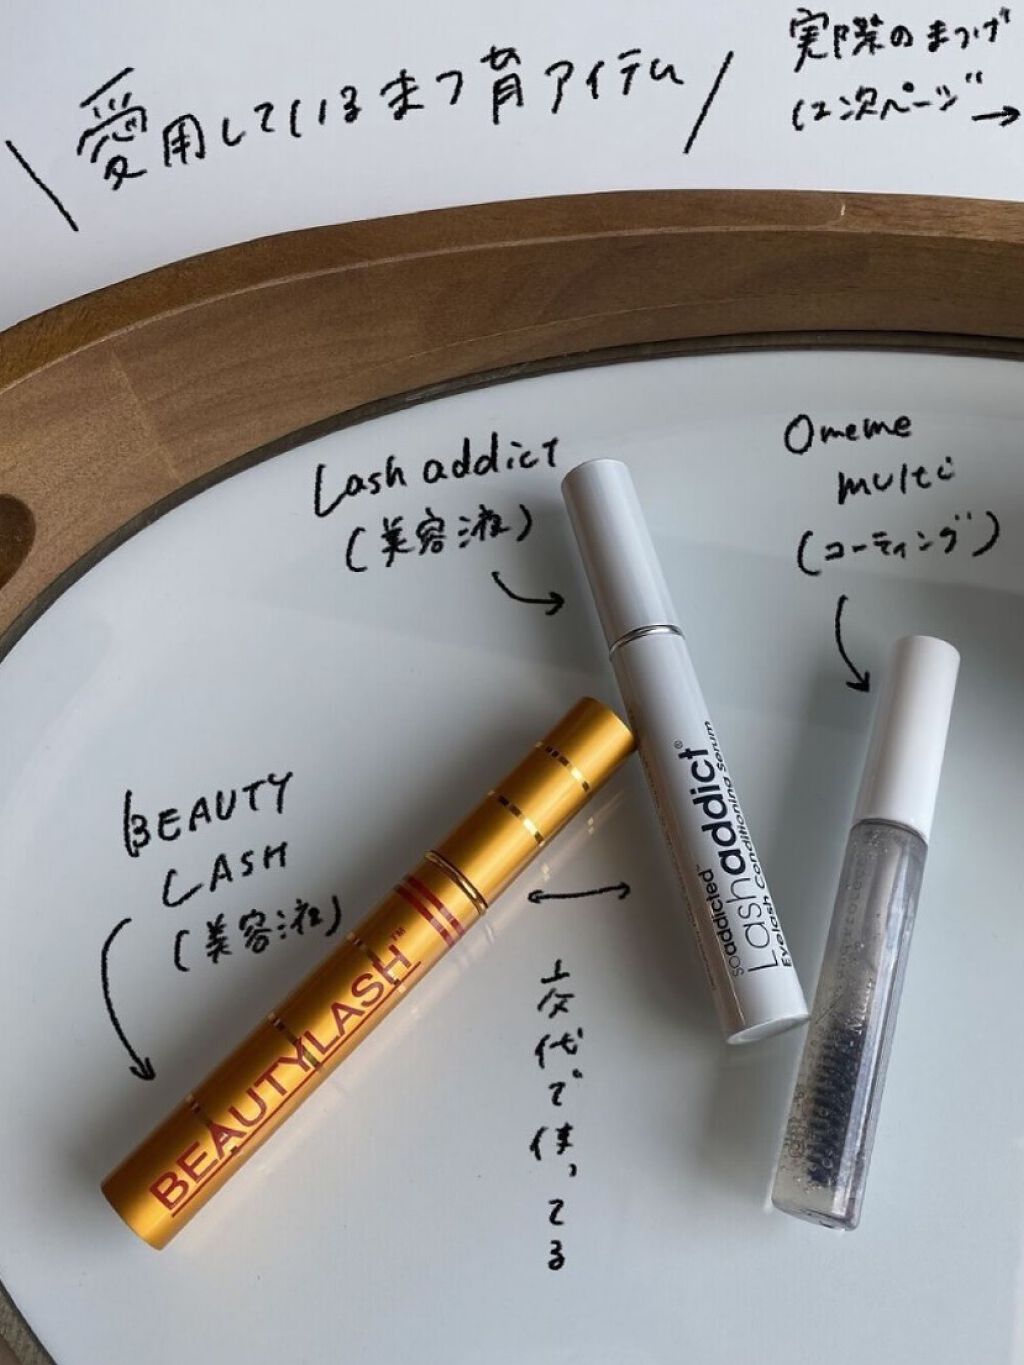 愛用しているまつ育アイテム
実際のまつげ
は次ページ→
Lash addict
(美容液)
Omeme
multi
(コーティング)
BEAUTY
LASH
(美容液)
交代で使ってる
soaddicted™
Lashaddict®
Eyelash Conditioning Serum
BEAUTYLASH™